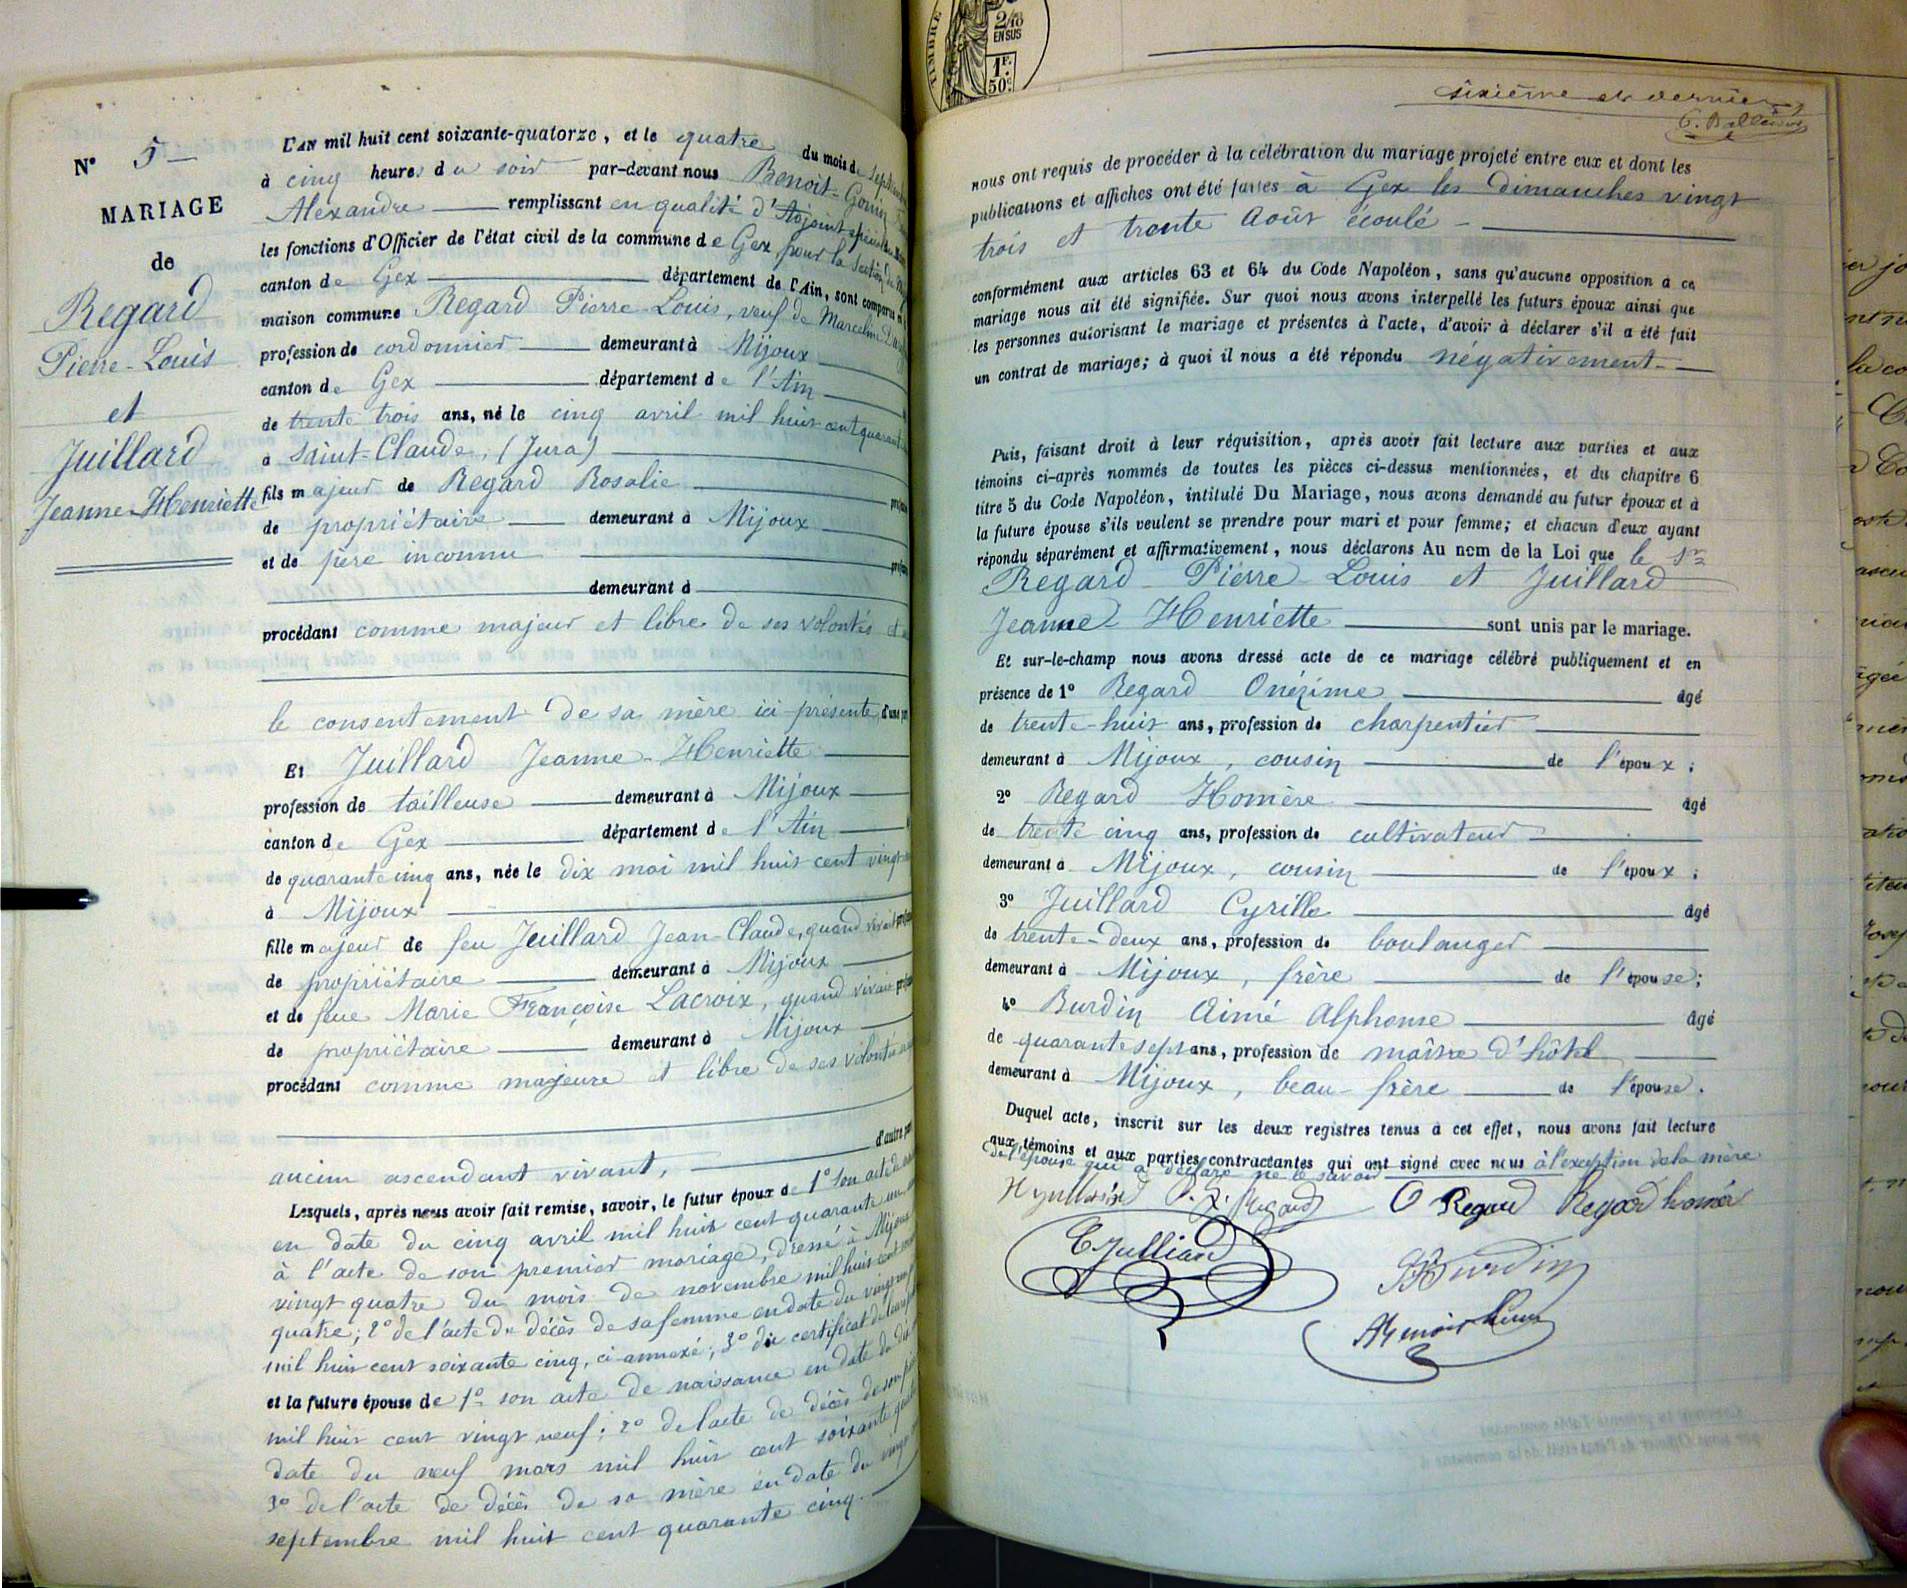 N° 5
MARIAGE
de
Regard
Pierre-Louis
et
Juillard
Jeanne-Henriette
L'AN mil huit cent soixante-quatorze, et le quatre du mois de
à cinq heures du soir par-devant nous Benoit-Gonin
Alexandre remplissant en qualité d'Adjoint spécial
les fonctions d'Officier de l'état civil de la commune de Gex pour la Section de
canton de Gex département de l'Ain, sont comparus en
maison commune Regard Pierre-Louis, veuf de
profession de cordonnier demeurant à Mijoux
canton de Gex département de l'Ain
de trente trois ans, né le cinq avril mil huit cent
à Saint-Claude, (Jura)
fils majeur de Regard Rosalie
de propriétaire demeurant à Mijoux
et de père inconnu
demeurant à
procédant comme majeur et libre de ses volontés
le consentement de sa mère ici présente, d'une
Et Juillard Jeanne-Henriette
profession de tailleuse demeurant à Mijoux
canton de Gex département de l'Ain
de quarante cinq ans, née le dix mai mil huit cent
à Mijoux
fille majeur de feu Juillard Jean-Claude, quand vivait
de propriétaire demeurant à Mijoux
et de feue Marie Françoise Lacroix, quand vivait
de propriétaire demeurant à Mijoux
procédant comme majeure et libre de ses volontés
d'autre
aucun ascendant vivant,
Lesquels, après nous avoir fait remise, savoir, le futur époux de 1° son acte de
en date du cinq avril mil huit cent quarante
à l'acte de son premier mariage, dressé à Mijoux
vingt quatre du mois de novembre mil huit cent
quatre; 2° de l'acte de décès de sa femme en date du
mil huit cent soixante cinq, ci-annexé; 3° du certificat de
et la future épouse de 1° son acte de naissance en date du
mil huit cent vingt neuf; 2° de l'acte de décès de son
date du neuf mars mil huit cent soixante
3° de l'acte de décès de sa mère en date du vingt
septembre mil huit cent quarante cinq.
TIMBRE
2/10
EN SUS
1F.
50c.
sixième et dernier
nous ont requis de procéder à la célébration du mariage projeté entre eux et dont les
publications et affiches ont été faites à Gex les dimanches vingt
trois et trente Août écoulé
conformément aux articles 63 et 64 du Code Napoléon, sans qu'aucune opposition à ce
mariage nous ait été signifiée. Sur quoi nous avons interpellé les futurs époux ainsi que
les personnes autorisant le mariage et présentes à l'acte, d'avoir à déclarer s'il a été fait
un contrat de mariage; à quoi il nous a été répondu négativement
Puis, faisant droit à leur réquisition, après avoir fait lecture aux parties et aux
témoins ci-après nommés de toutes les pièces ci-dessus mentionnées, et du chapitre 6
titre 5 du Code Napoléon, intitulé Du Mariage, nous avons demandé au futur époux et à
la future épouse s'ils veulent se prendre pour mari et pour femme; et chacun d'eux ayant
répondu séparément et affirmativement, nous déclarons Au nom de la Loi que le Sr
Regard Pierre Louis et Juillard
Jeanne-Henriette sont unis par le mariage.
Et sur-le-champ nous avons dressé acte de ce mariage célébré publiquement et en
présence de 1° Regard Onézime âgé
de trente-huit ans, profession de charpentier
demeurant à Mijoux, cousin de l'époux;
2° Regard Homère âgé
de trente cinq ans, profession de cultivateur
demeurant à Mijoux, cousin de l'époux;
3° Juillard Cyrille âgé
de trente-deux ans, profession de boulanger
demeurant à Mijoux, frère de l'épouse;
4° Burdin Aimé Alphonse âgé
de quarante sept ans, profession de maître d'hôtel
demeurant à Mijoux, beau-frère de l'épouse.
Duquel acte, inscrit sur les deux registres tenus à cet effet, nous avons fait lecture
aux témoins et aux parties contractantes qui ont signé avec nous à l'exception de la mère
de l'épouse qui a déclaré ne le savoir
P. L. Regard O Regard Regard homère
C. Julliard
Burdin